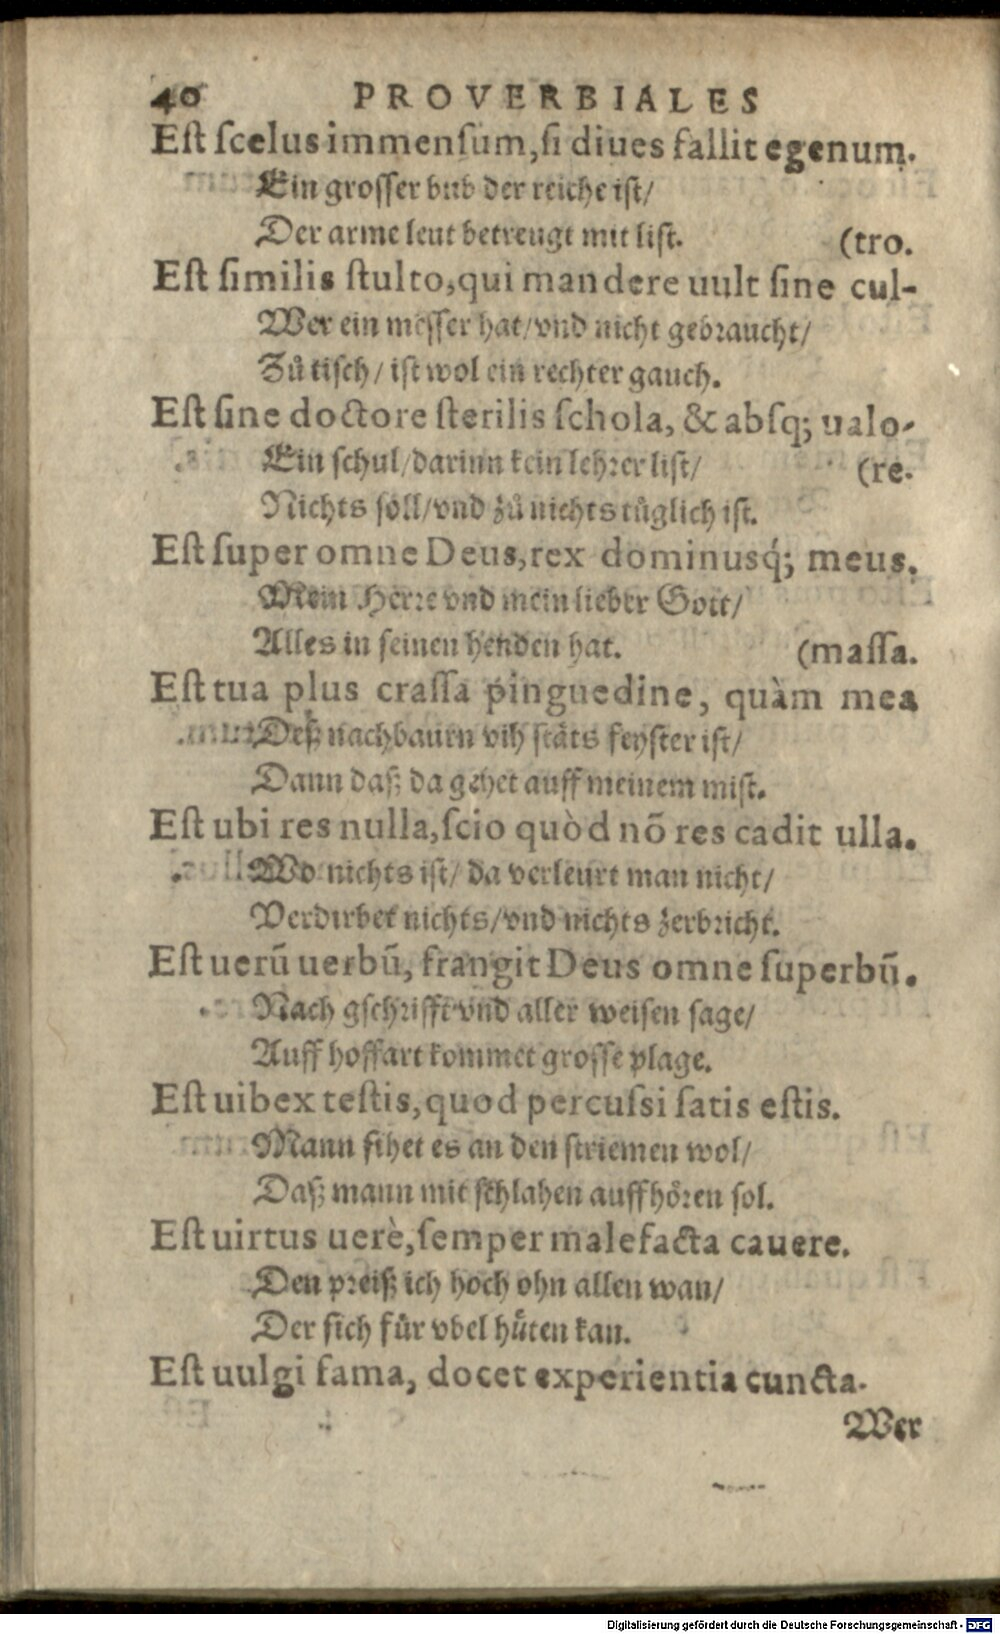 40 PROVERBIALES
Est scelus immensum, si diues fallit egenum.
Ein grosser bub der reiche ist/
Der arme leut betreugt mit list. (tro.
Est similis stulto, qui mandere uult sine cul-
Wer ein messer hat/vnd nicht gebraucht/
Zů tisch/ ist wol ein rechter gauch.
Est sine doctore sterilis schola, & absq; ualo-
Ein schul/darinn kein lehrer list/ (re.
Nichts soll/vnd zů nichts tůglich ist.
Est super omne Deus, rex dominusq́; meus.
Mein Herre vnd mein lieber Gott/
Alles in seinen henden hat. (massa.
Est tua plus crassa pinguedine, quàm mea
Deß nachbaurn vih stäts feyster ist/
Dann daß da gehet auff meinem mist.
Est ubi res nulla, scio quòd nõ res cadit ulla.
Wo nichts ist/ da verleurt man nicht/
Verdirbet nichts/vnd nichts zerbricht.
Est uerũ uerbũ, frangit Deus omne superbũ.
Nach gschrifft vnd aller weisen sage/
Auff hoffart kommet grosse plage.
Est uibex testis, quod percussi satis estis.
Mann sihet es an den striemen wol/
Daß mann mit schlahen auffhören sol.
Est uirtus uerè, semper malefacta cauere.
Den preiß ich hoch ohn allen wan/
Der sich für vbel hüten kan.
Est uulgi fama, docet experientia cuncta.
Wer
Digitalisierung gefördert durch die Deutsche Forschungsgemeinschaft - DFG